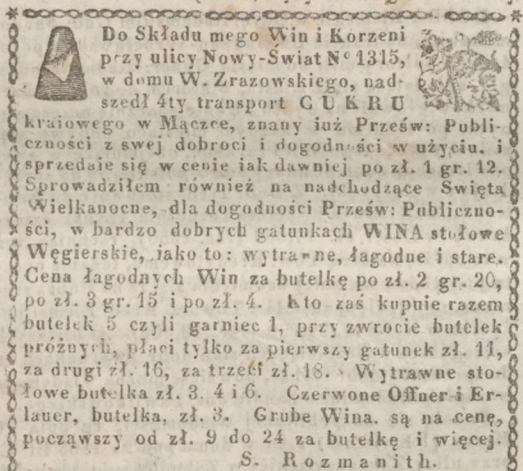 Do Składu mego Win i Korzeni
przy ulicy Nowy-Świat Nº 1315,
w domu W. Zrazowskiego, nad-
szedł 4ty transport CUKRU
kraiowego w Mączce, znany iuż Prześw: Publi-
czności z swej dobroci i dogodności w użyciu. i
sprzedaie się w cenie iak dawniej po zł. 1 gr. 12.
Sprowadziłem również na nadchodzące Swięta
Wielkanocne, dla dogodności Prześw: Publiczno-
ści, w bardzo dobrych gatunkach WINA stołowe
Węgierskie, jako to: wytrawne, łagodne i stare.
Cena łagodnych Win za butelkę po zł. 2 gr. 20,
po zł. 3 gr. 15 i po zł. 4. Kto zaś kupnie razem
butelek 5 czyli garniec 1, przy zwrocie butelek
próżnych, płaci tylko za pierwszy gatunek zł. 11,
za drugi zł. 16, za trzeci zł. 18. Wytrawne sto-
łowe butelka zł. 3. 4 i 6. Czerwone Offner i Er-
lauer, butelka, zł. 3. Grube Wina. są na cenę,
począwszy od zł. 9 do 24 za butelkę i więcej.
S. Rozmanith.